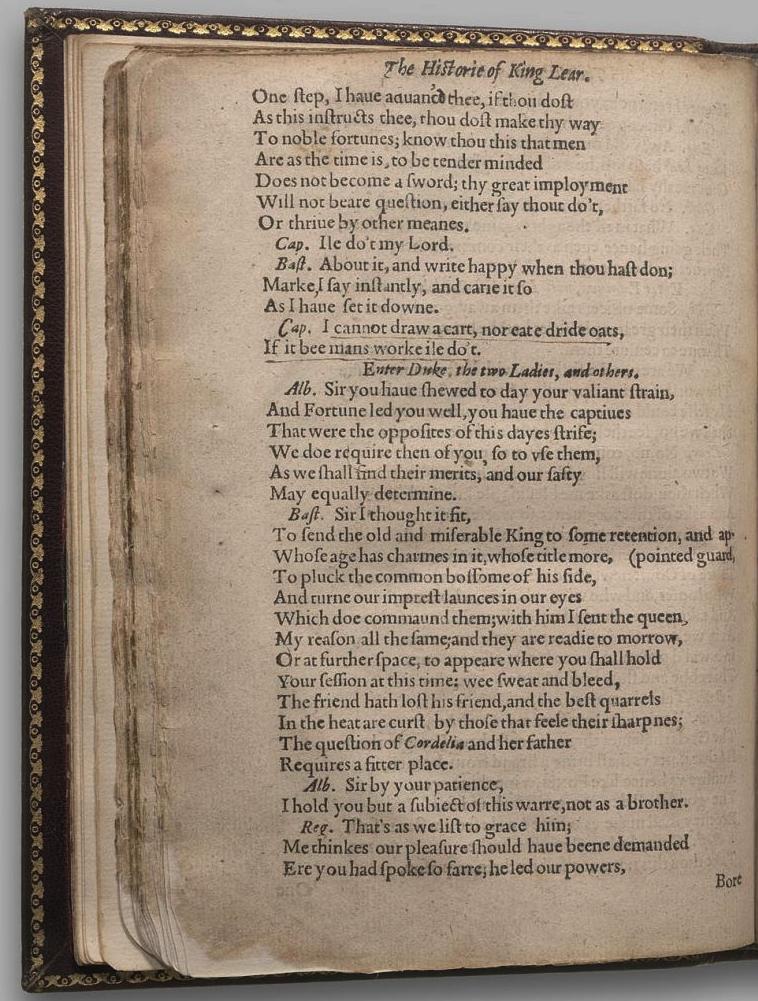 The Historie of King Lear.
One ſtep, I haue aduancd thee, if thou doſt
As this inſtructs thee, thou doſt make thy way
To noble fortunes; know thou this that men
Are as the time is, to be tender minded
Does not become a ſword; thy great imployment
Will not beare queſtion, either ſay thout do't,
Or thriue by other meanes.
Cap. Ile do't my Lord.
Baſt. About it, and write happy when thou haſt don;
Marke, I ſay inſtantly, and carie it ſo
As I haue ſet it downe.
Cap. I cannot draw a cart, nor eate dride oats,
If it bee mans worke ile do't.
Enter Duke, the two Ladies, and others.
Alb. Sir you haue ſhewed to day your valiant ſtrain,
And Fortune led you well, you haue the captiues
That were the oppoſites of this dayes ſtrife;
We doe require then of you, ſo to vſe them,
As we ſhall find their merits, and our ſafty
May equally determine.
Baſt. Sir I thought it fit,
To ſend the old and miſerable King to ſome retention, and ap-
Whoſe age has charmes in it, whoſe title more, (pointed guard,
To pluck the common boſſome of his ſide,
And turne our impreſt launces in our eyes
Which doe commaund them; with him I ſent the queen,
My reaſon all the ſame; and they are readie to morrow,
Or at further ſpace, to appeare where you ſhall hold
Your ſeſſion at this time: wee ſweat and bleed,
The friend hath loſt his friend, and the beſt quarrels
In the heat are curſt by thoſe that feele their ſharpnes;
The queſtion of Cordelia and her father
Requires a fitter place.
Alb. Sir by your patience,
I hold you but a ſubiect of this warre, not as a brother.
Reg. That's as we liſt to grace him;
Me thinkes our pleaſure ſhould haue beene demanded
Ere you had ſpoke ſo farre; he led our powers,
Bore